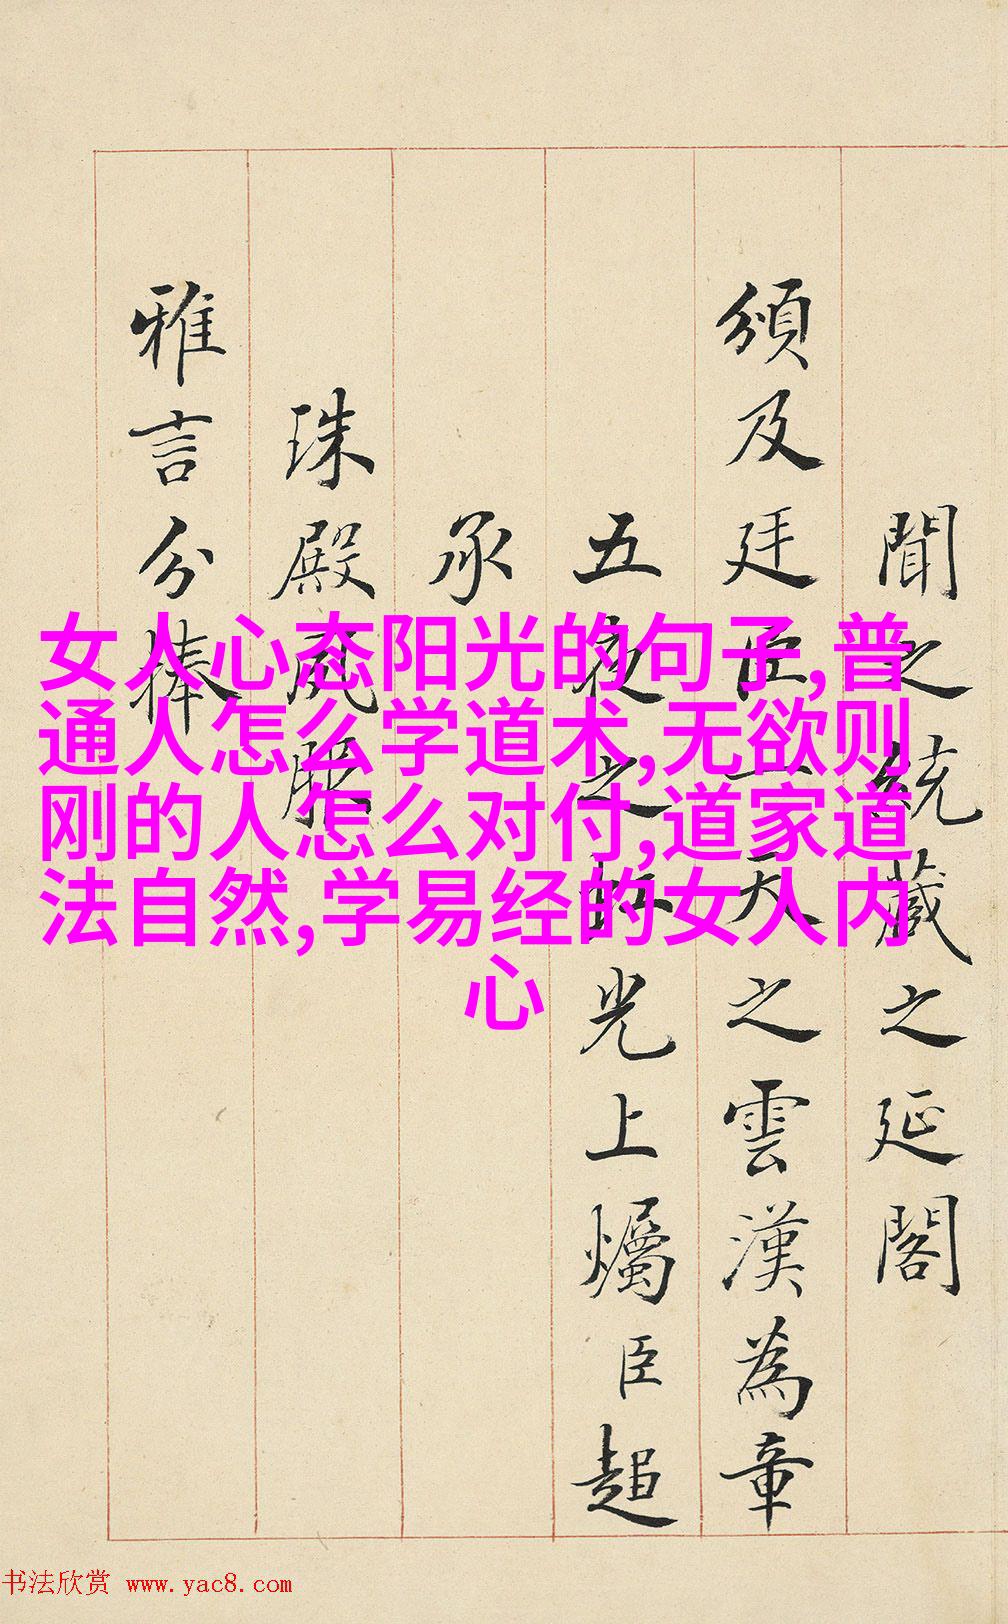 聞之統藏之延閣
頒及廷臣一天之雲漢為章
五夜之光上爥臣超
承
珠殿
雅言分捧
女人心态阳光的句子,普
通人怎么学道术,无欲则
刚的人怎么对付,道家道
法自然,学易经的女人内
心
书法欣赏 www.yac8.com